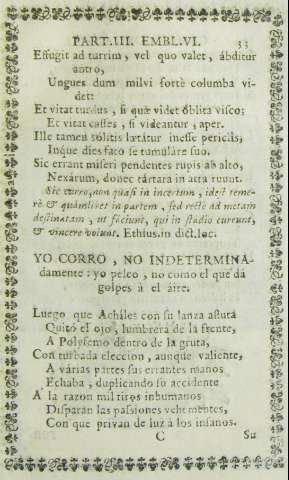 PART.III. EMBL.VI. 33
Effugit ad turrim, vel quo valet, ábditur
antro,
Ungues dum milvi fortè columba vi-
det:
Et vitat turdus, si quæ videt óblita visco;
Et vitat casses, si videantur, aper.
Ille tamen sólitis lætátur inesse periclis;
Inque dies fato se tumuláre suo.
Sic errant miseri pendentes rupis ab alto,
Nexárum, donec tártara in atra ruunt.
Sic curro, non quasi in incertum, idest teme-
rè & quámlibet in partem, sed rectè ad metam
destinatam, ut fáciunt, qui in stadio currunt,
& vincere volunt. Ethius.in dict.loc.
YO CORRO, NO INDETERMINA-
damente: yo peleo, no como el que dá
golpes á el áire.
Luego que Achîles con su lanza astuta
Quitó el ojo, lumbrera de la frente,
A Polyfemo dentro de la gruta,
Con turbada eleccion, aunque valiente,
A várias partes sus errantes manos
Echaba, duplicando su accidente
A la razon mil tiros inhumanos
Disparan las passiones vehementes,
Con que privan de luz á los insanos.
C Su